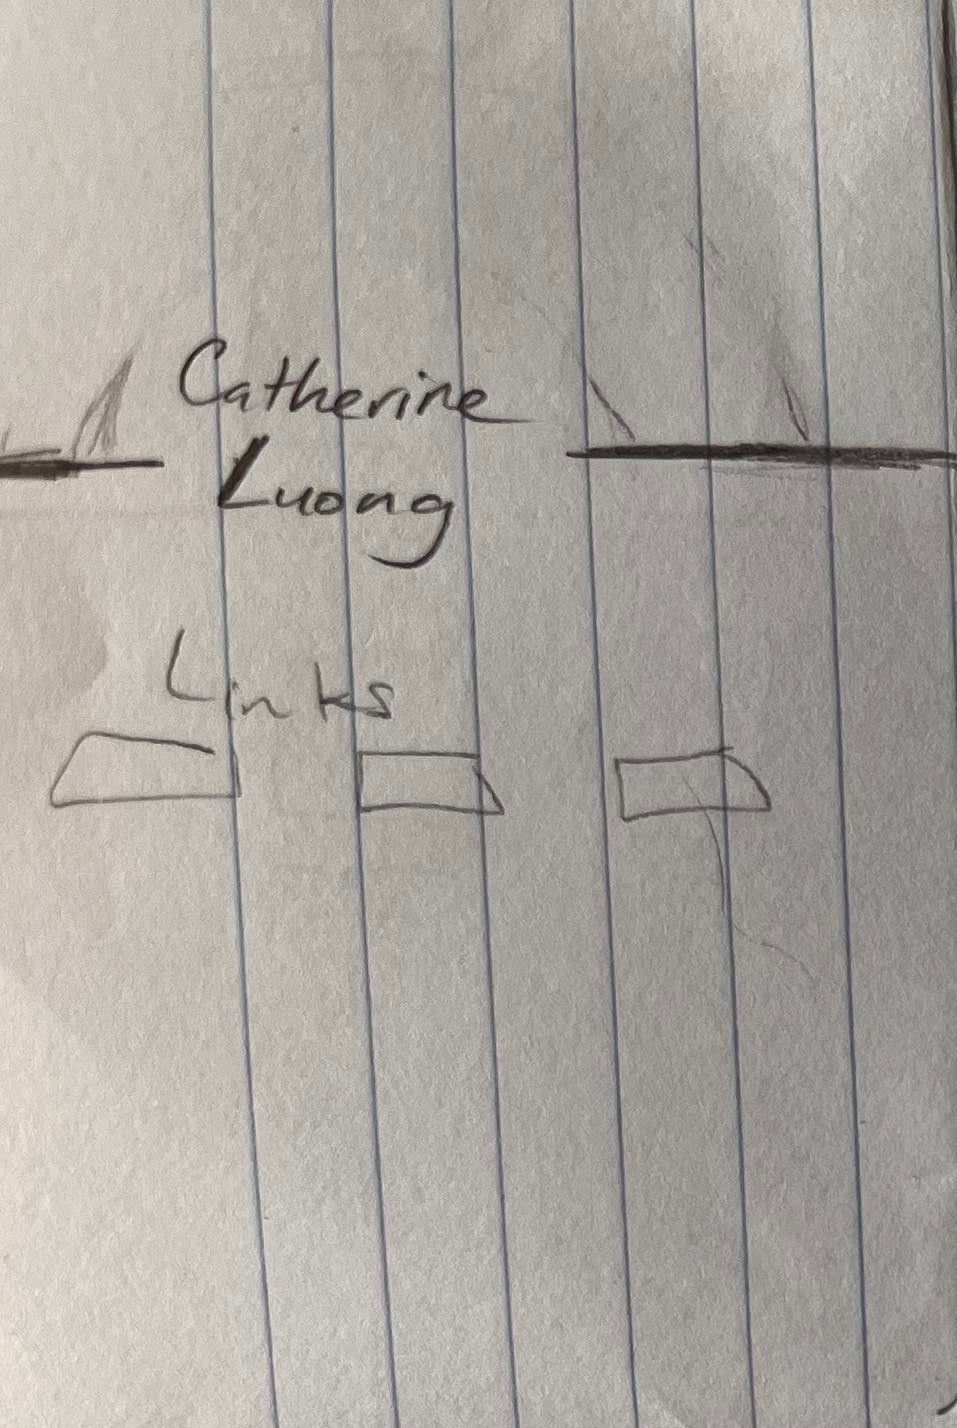 Catherine
Luong
Links